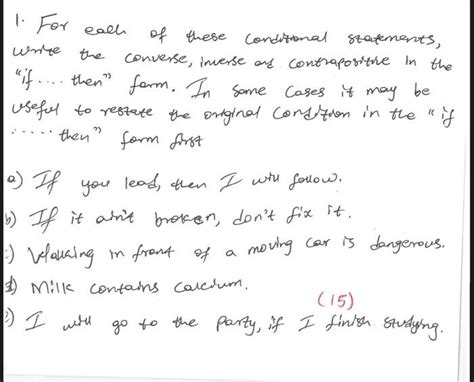 1. For each of these conditional statements,
write the converse, inverse and contrapositive in the
"if .... then" form. In some cases it may be
useful to restate the original condition in the "if
..... then" form first
a) If you lead, then I will follow.
b) If it ain't broken, don't fix it.
c) Walking in front of a moving car is dangerous.
d) Milk contains calcium.
(15)
e) I will go to the party, if I finish studying.